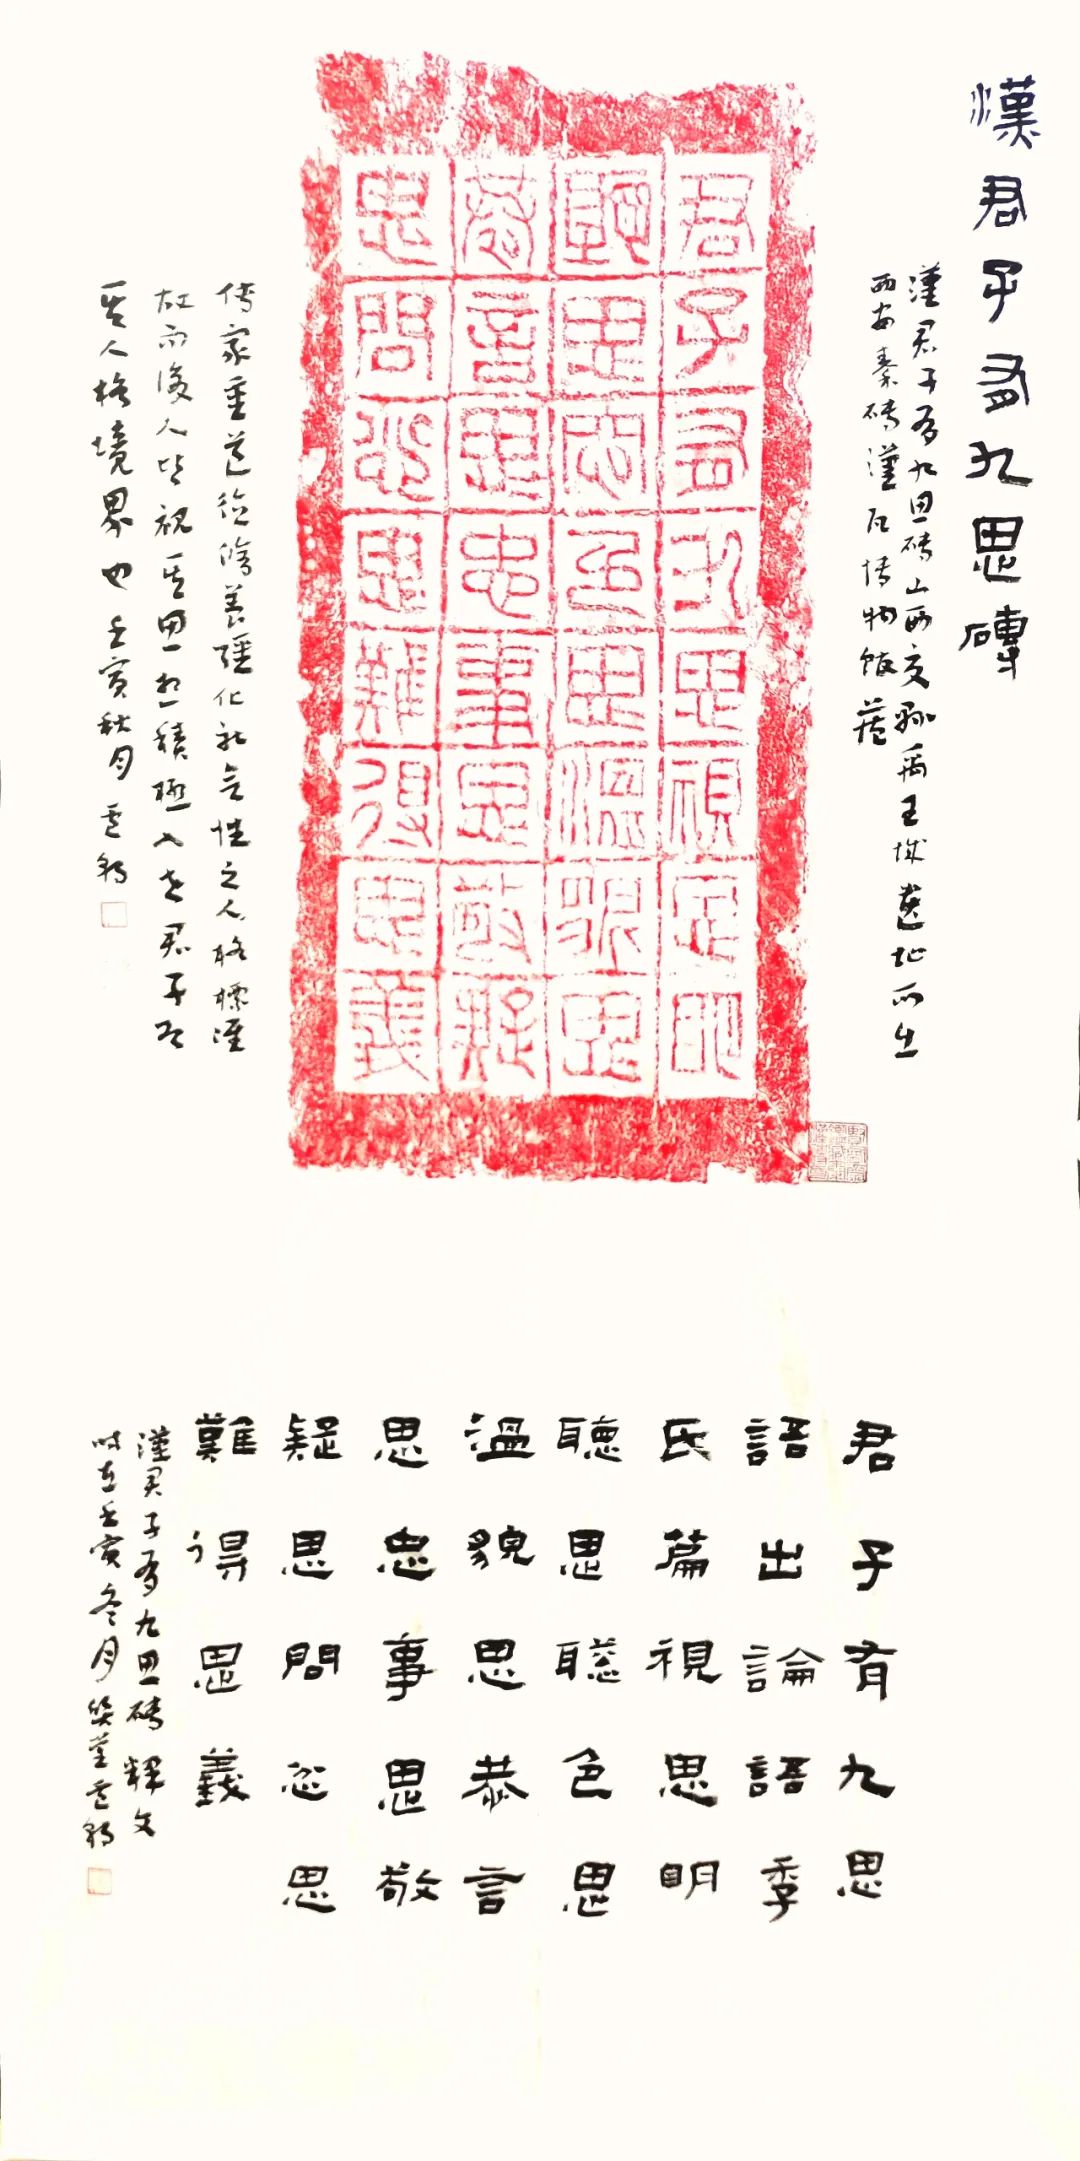 漢君子有九思磚
漢君子有九思砖山西夏縣禹王城遺址所出
西安秦砖漢瓦博物館藏
君子有九思視思明
聽思聰色思溫貌思
恭言思忠事思敬疑
思問忿思難得思義
家重道德修養強化社会性之人格標准
故而後人皆視其思想積極入世君子為
其人格境界也壬寅秋月
君子有九思
語出論語季
氏篇視思明
聽思聰色思
溫貌思恭言
思忠事思敬
疑思問忿思
難得思義
漢君子有九思砖釋文
時在壬寅冬月